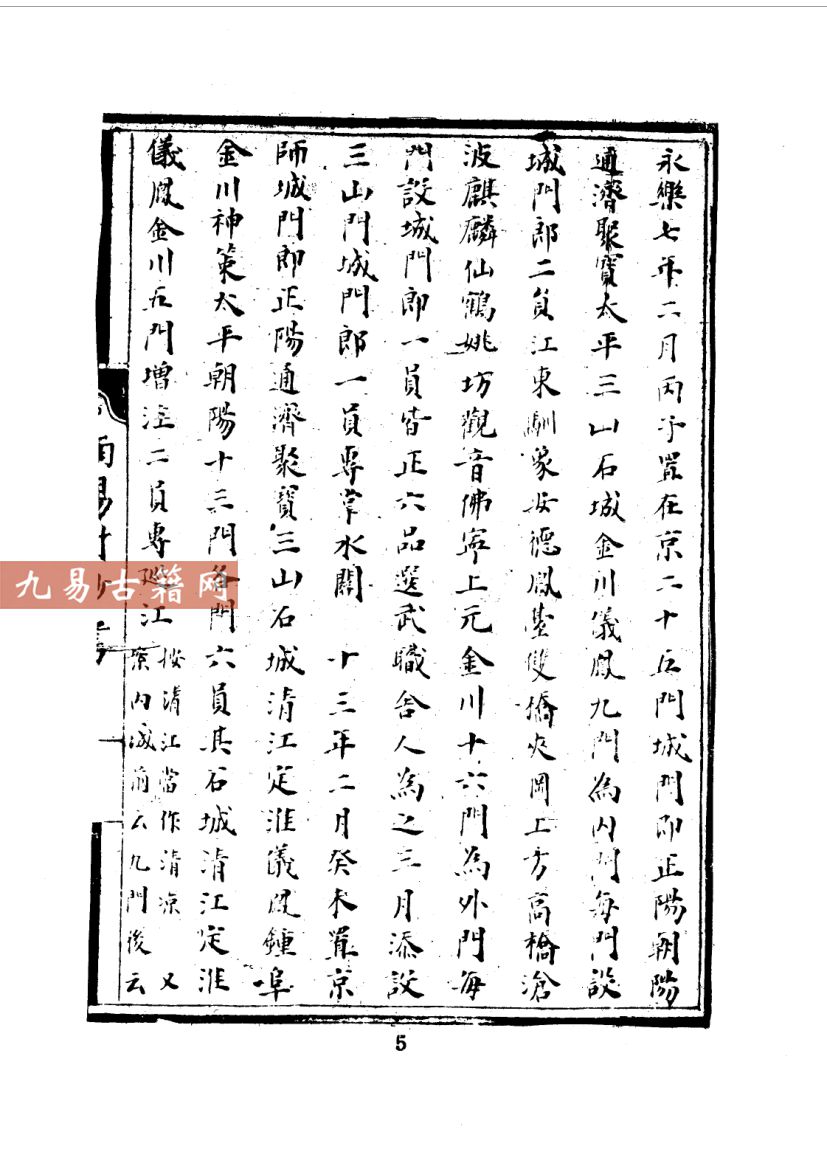 永樂七年二月丙子置在京二十五門城門郎正陽朝陽
通濟聚寳太平三山石城金川儀鳳九門為内門每門設
城門郎二員江東馴象安德鳳臺雙橋夾岡上方高橋滄
波麒麟仙鶴姚坊觀音佛寧上元金川十六門為外門每
門設城門郎一員皆正六品選武職舍人為之三月添設
三山門城門郎一員專掌水關 十三年二月癸未置京
師城門郎正陽通濟聚寳三山石城清江定淮儀鳳鍾阜
金川神策太平朝陽十三門各門六員其石城清江定淮
儀鳳金川五門增注二員專廵江
按清江當作清凉 又
案内城前云九門後云
九易古籍网
5